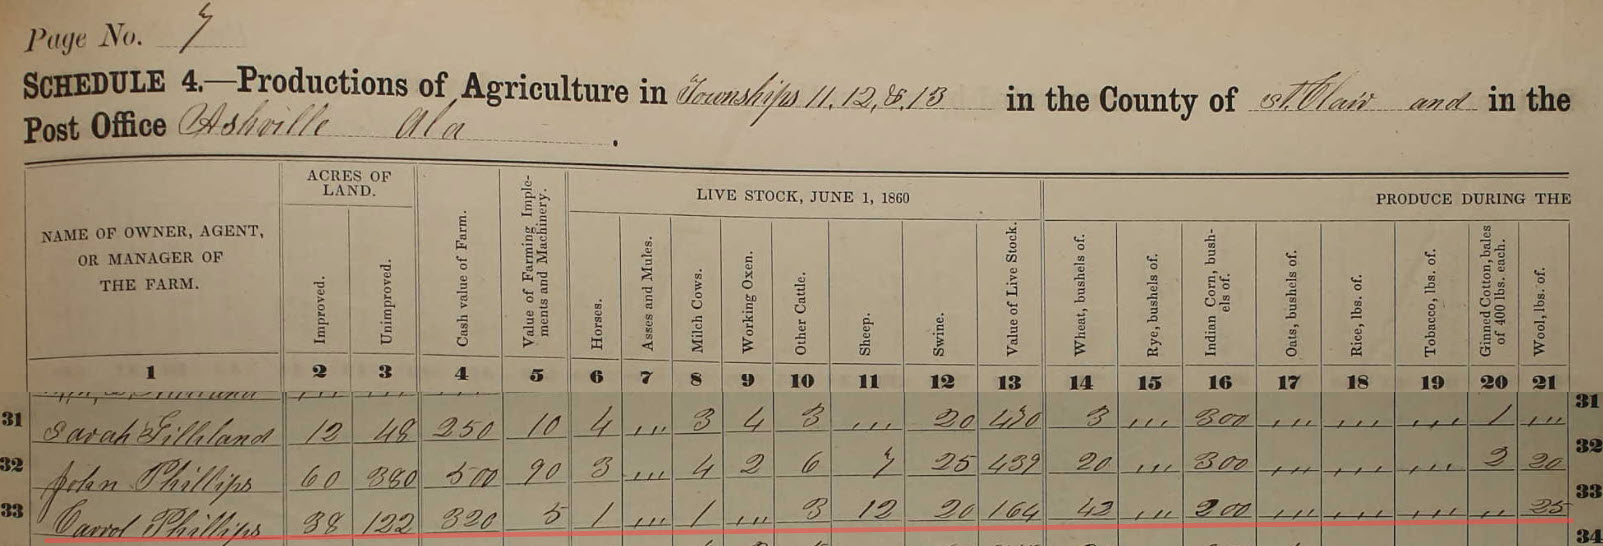 Page No. 7
SCHEDULE 4.—Productions of Agriculture in Townships 11, 12, & 13 in the County of St. Clair and in the
Post Office Ashville Ala.
NAME OF OWNER, AGENT,
OR MANAGER OF
THE FARM.
ACRES OF
LAND.
Improved.
Unimproved.
Cash value of Farm.
Value of Farming Imple-
ments and Machinery.
LIVE STOCK, JUNE 1, 1860
Horses.
Asses and Mules.
Milch Cows.
Working Oxen.
Other Cattle.
Sheep.
Swine.
Value of Live Stock.
PRODUCE DURING THE
Wheat, bushels of.
Rye, bushels of.
Indian Corn, bush-
els of.
Oats, bushels of.
Rice, lbs. of.
Tobacco, lbs. of.
Ginned Cotton, bales
of 400 lbs. each.
Wool, lbs. of.
1 2 3 4 5 6 7 8 9 10 11 12 13 14 15 16 17 18 19 20 21
31 Sarah Gilliland 12 48 250 10 4 ,,, 3 4 3 ,,, 20 430 3 ,,, 300 ,,, ,,, ,,, 1 ,,, 31
32 John Phillips 60 380 500 90 3 ,,, 4 2 6 7 25 439 20 ,,, 300 ,,, ,,, ,,, 2 20 32
33 Carrol Phillips 38 122 320 5 1 ,,, 1 ,,, 3 12 20 164 42 ,,, 200 ,,, ,,, ,,, ,, 25 33
34